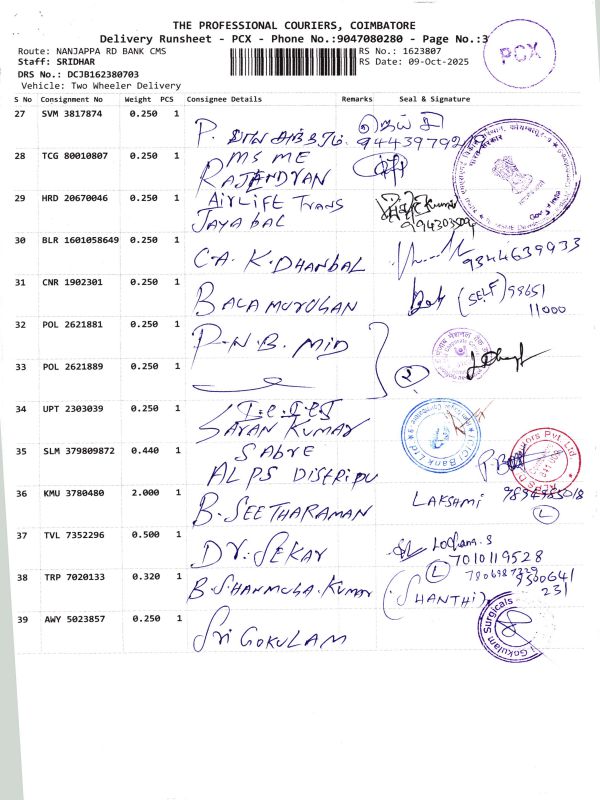 THE PROFESSIONAL COURIERS, COIMBATORE
Delivery Runsheet - PCX - Phone No.:9047080280 - Page No.:3
PCX
Route: NANJAPPA RD BANK CMS
RS No.: 1623807
Staff: SRIDHAR
RS Date: 09-Oct-2025
DRS No.: DCJB162380703
Vehicle: Two Wheeler Delivery
S No Consignment No Weight PCS Consignee Details Remarks Seal & Signature
27 SVM 3817874 0.250 1 P.
28 TCG 80010807 0.250 1 MSME
RAJENDRAN
29 HRD 20670046 0.250 1 AIRLIFE Trans
JAYA bAL
30 BLR 1601058649 0.250 1 C.A. K. DHANbAL 9344639933
31 CNR 1902301 0.250 1 BALAMUROGAN (SELF) 98651
11000
32 POL 2621881 0.250 1 P.N.B. MID
33 POL 2621889 0.250 1 2
34 UPT 2303039 0.250 1 I.C.I.C.I
SARAN KUMAR
ICICI Bank Ltd
35 SLM 379809872 0.440 1 SAbRE
ALPS DISTRIPU
36 KMU 3780480 2.000 1 B. SEETHARAMAN LAKSHMI 9894985018
L
37 TVL 7352296 0.500 1 DR. SEKAR Lochana.S
7010119528
L
38 TRP 7020133 0.320 1 B. SHANMUGA. KUMAR (SHANTHI) 9500641
231
39 AWY 5023857 0.250 1 Sri GOKULAM
Gokulam Surgicals